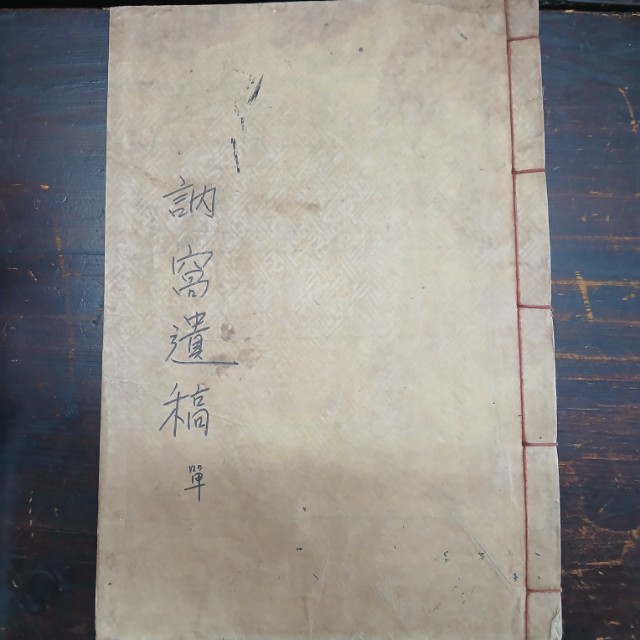 訥窩遺稿 單